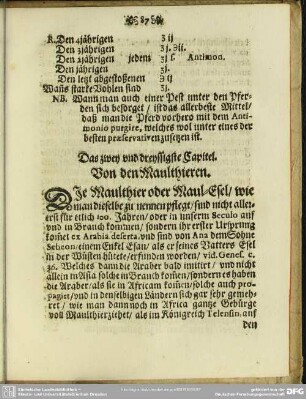 87
R. Den 4jährigen ʒ ij
Den 3jährigen ʒj. ℈ij.
Den 2jährigen jedem ʒj ſ. Antimon.
Den jährigen ʒj.
Den letzt abgeſtoſſenen ℈ ij
Wañs ſtarke Vohlen ſind ʒj.
NB. Wann man auch einer Peſt unter den Pfer-
den ſich beſorget / iſt das allerbeſte Mittel /
daß man die Pferd vorhero mit dem Anti-
monio purgire, welches wol unter eines der
beſten præſervativen zuſetzen iſt.
Das zwey und dreyſſigſte Capitel.
Von den Maulthieren.
DIe Maulthier oder Maul-Eſel / wie
man dieſelbe zu nennen pflegt / ſind nicht aller-
erſt für etlich 100. Jahren / oder in unſerm Seculo auf
und in Brauch kommen / ſondern ihr erſter Urſprung
kom̃et ex Arabia deſerta, und ſind von Ana dem Sohne
Sebeon / einem Enkel Eſau / als er ſeines Vatters Eſel
in der Wüſten hütete / erfunden worden / vid. Geneſ. c.
36. Welches dann die Araber bald imitirt / und nicht
allein in Aſia ſolche in Brauch kom̃en / ſondern es haben
die Araber / als ſie in Africam kom̃en / ſolche auch pro-
pagiret / und in denſelbigen Ländern ſich gar ſehr gemeh-
ret / wie man dann noch in Africa gantze Gebürge
voll Maulthier ziehet / als im Königreich Telenſin auf
den